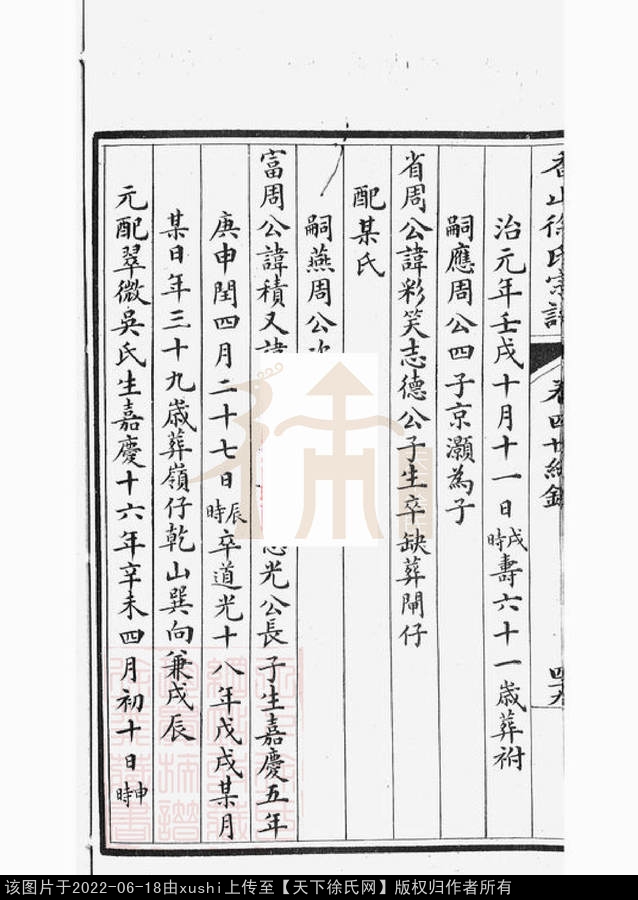 香山徐氏宗譜 卷四 十
治元年壬戌十月十一日戌時壽六十一歲葬祔
嗣應周公四子京灝為子
省周公諱彩笑志德公子生卒缺葬閘仔
配某氏
嗣燕周公次
富周公諱積又諱
志光公長子生嘉慶五年
庚申閏四月二十七日辰時卒道光十八年戊戌某月
某日年三十九歲葬嶺仔乾山巽向兼戌辰
元配翠微吳氏生嘉慶十六年辛未四月初十日申時
该图片于2022-06-18由xushi上传至【天下徐氏网】版权归作者所有